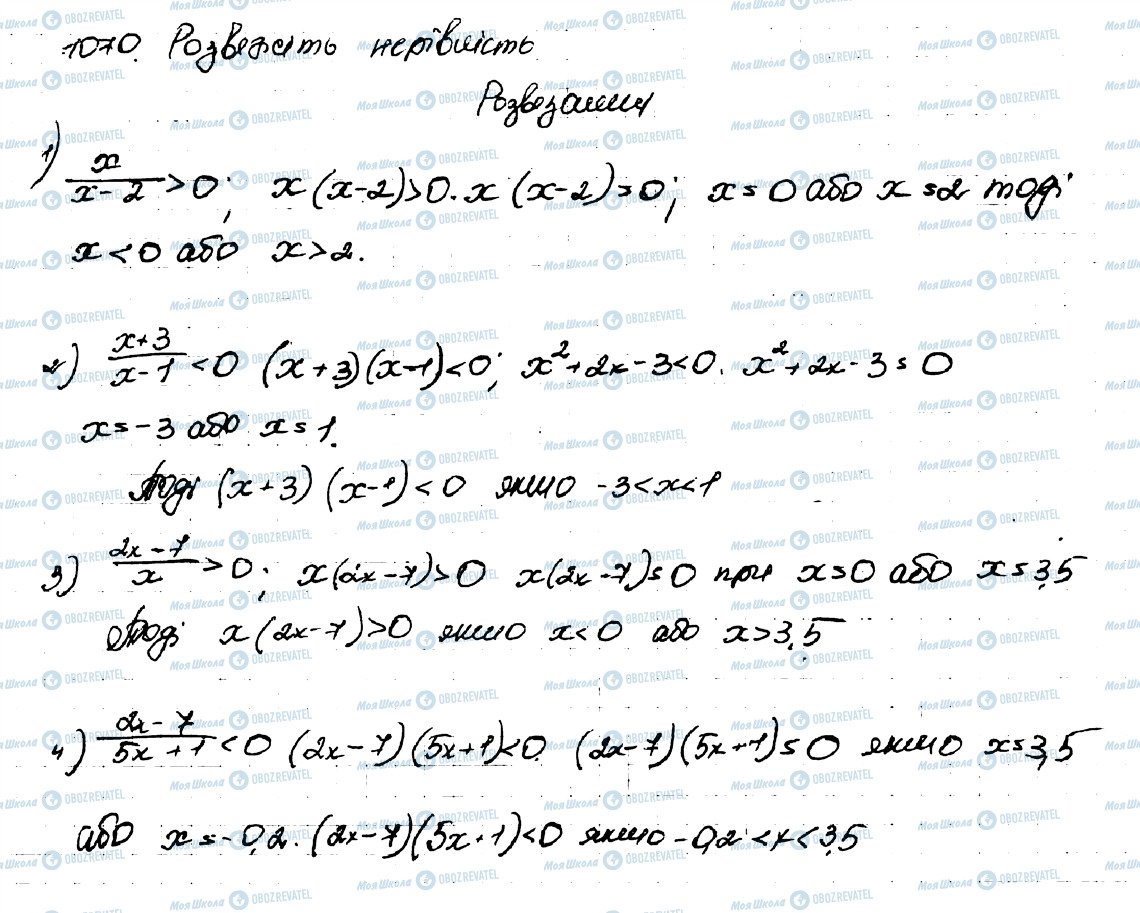 1070. Розвежіть нерівність
Розвезання
1) x/(x-2) > 0; x(x-2)>0. x(x-2)=0; x=0 або x=2 тоді
x<0 або x>2.
2) (x+3)/(x-1) < 0 (x+3)(x-1)<0; x²+2x-3<0. x²+2x-3=0
x=-3 або x=1.
Тоді (x+3)(x-1)<0 якщо -3<x<1
3) (2x-7)/x > 0; x(2x-7)>0 x(2x-7)=0 при x=0 або x=3,5
Тоді x(2x-7)>0 якщо x<0 або x>3,5
4) (2x-7)/(5x+1) < 0 (2x-7)(5x+1)<0. (2x-7)(5x+1)=0 якщо x=3,5
або x=-0,2. (2x-7)(5x+1)<0 якщо -0,2<x<3,5
Моя Школа OBOZREVATEL